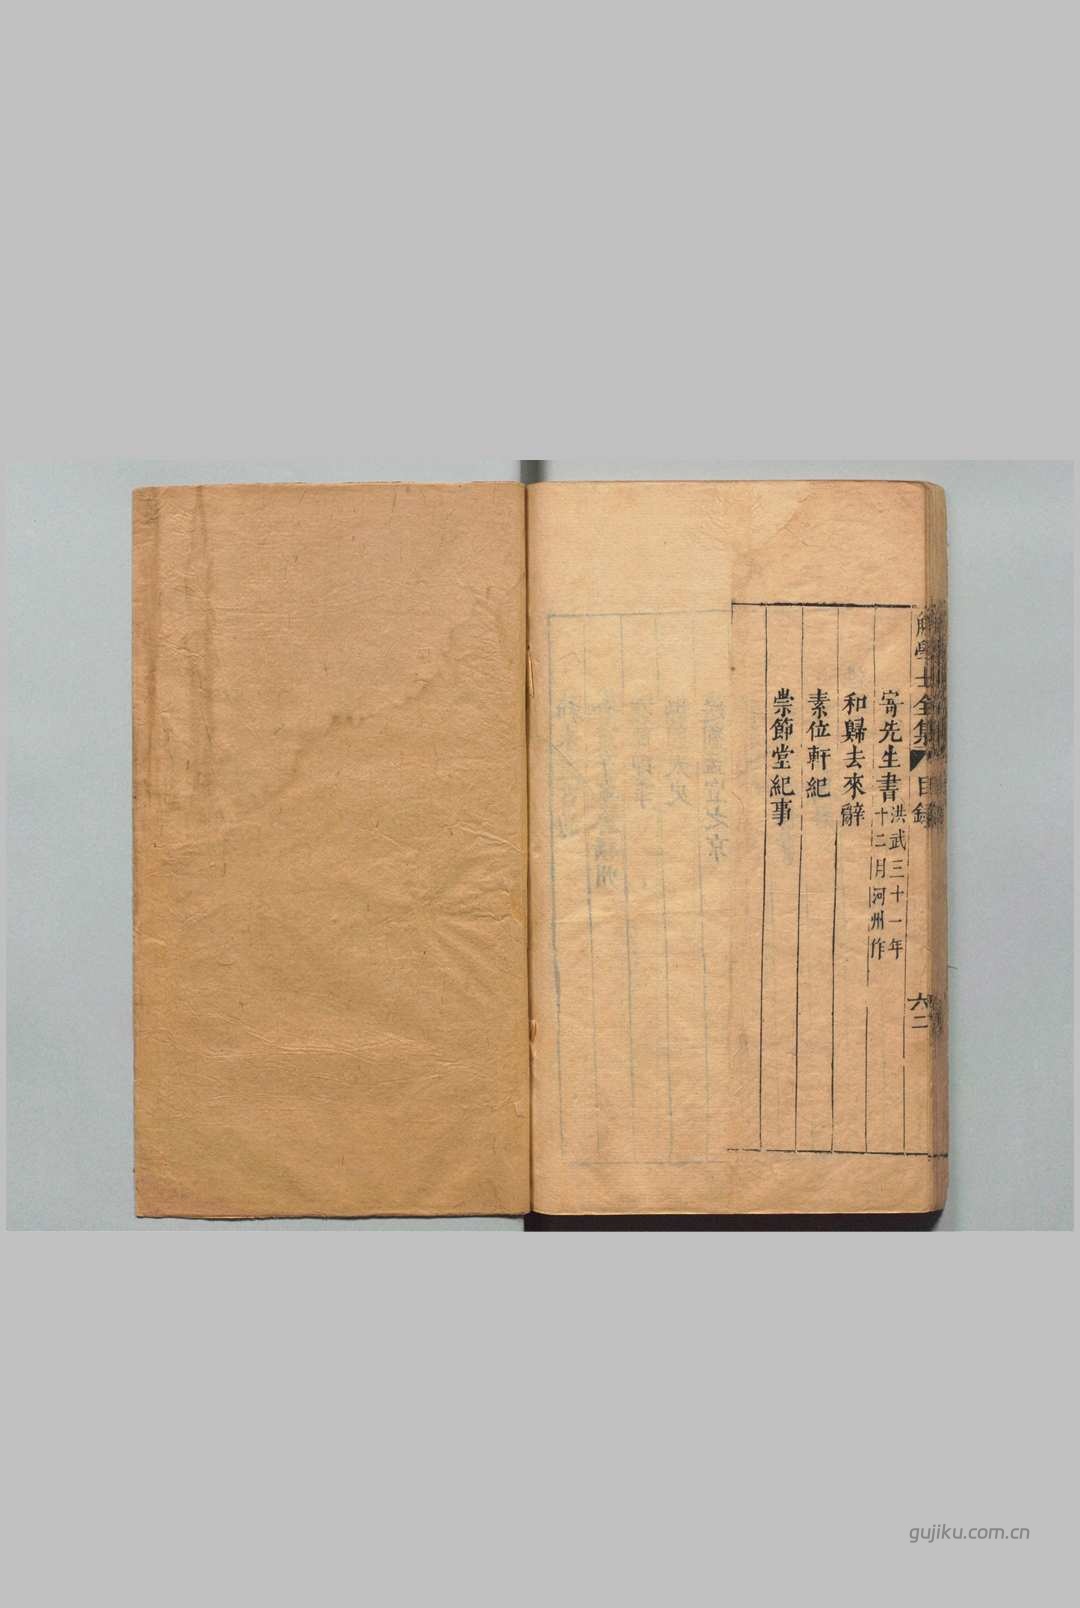 解學士全集 目錄 六二
寄先生書 洪武三十一年
十二月河州作
和歸去來辭
素位軒紀
崇節堂紀事
gujiku.com.cn